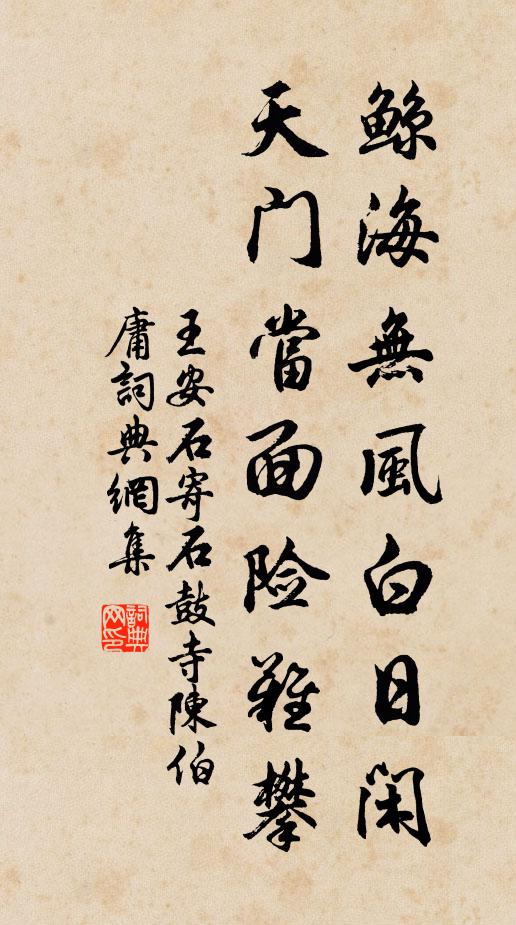 鲸海無風白日闲
天门當面险難攀
王安石寄石鼓寺陳伯
庸詞典網集
詞典
网印